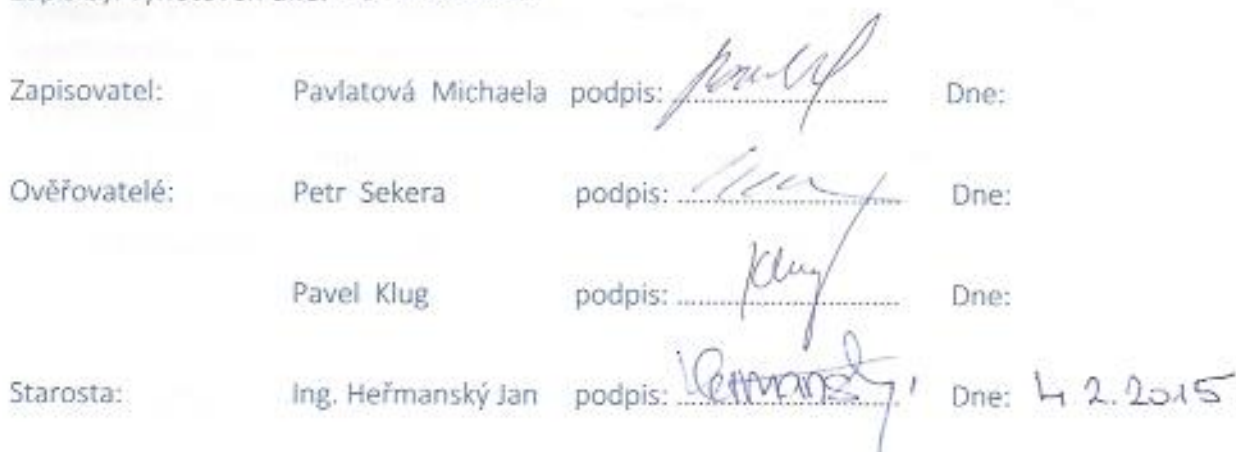 Zapisovatel: Pavlatová Michaela podpis: Dne:
Ověřovatelé: Petr Sekera podpis: Dne:
Pavel Klug podpis: Klug Dne:
Starosta: Ing. Heřmanský Jan podpis: Heřmanský Dne: 4 2.2015